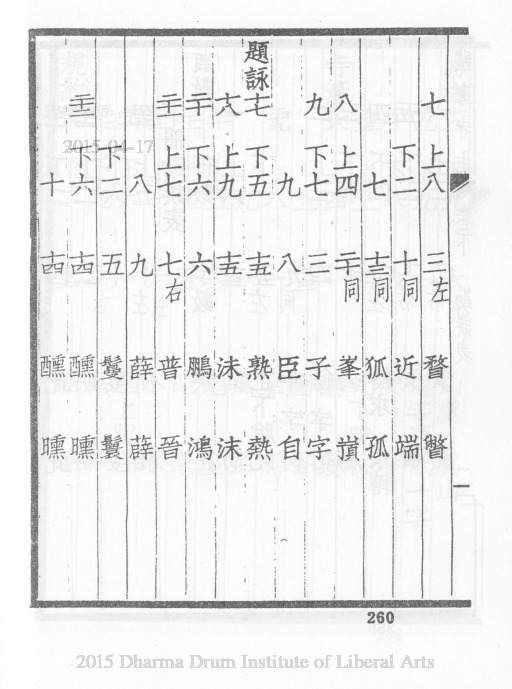 七 上 八 三左 瞀 瞥
下 二 十同 近 端
七 十三同 狐 孤
八 上 四 二十同 峯
九 下 七 三 子 字
九 八 臣 自
題詠 十七 下 五 十五 熟 熱
十八 上 九 十五 沫 沬
二十 下 六 六 鵬 鴻
二十一 上 七 七右 普 晉
八 九 薛 薜
下 二 五 鬘 鬟
下 六 十四 醺 曛
十 十四 醺 曛
260
2015-04-17
2015 Dharma Drum Institute of Liberal Arts